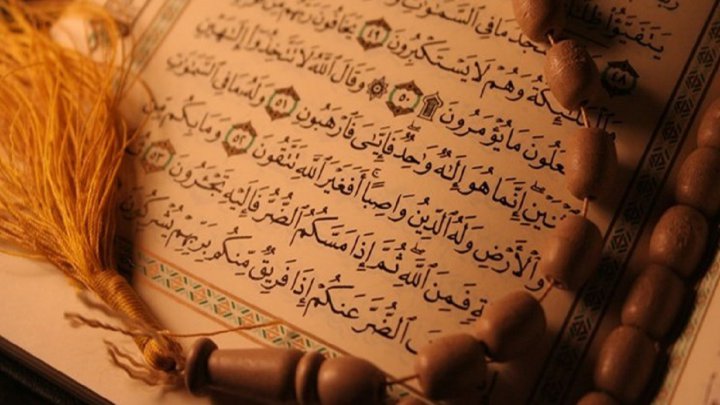 يَتَفَيَّؤُا۟ ظِلَـٰ
٤٨ سْجُدُ مَا فِى ٱلسَّمَـٰوَٰتِ
وَٱلْمَلَـٰٓئِكَةُ وَهُمْ لَا يَسْتَكْبِرُونَ ٤٩ يَخَافُونَ رَبَّهُم مِّن
عَلُونَ مَا يُؤْمَرُونَ ۩ ٥٠ ۞ وَقَالَ ٱللَّهُ لَا تَتَّخِذُوٓا۟ إِلَـٰهَيْنِ
نَيْنِ إِنَّمَا هُوَ إِلَـٰهٌ وَٰحِدٌ فَإِيَّـٰىَ فَٱرْهَبُونِ ٥١ وَلَهُۥ مَا فِى ٱلسَّمَـٰوَٰتِ
وَٱلْأَرْضِ وَلَهُ ٱلدِّينُ وَاصِبًا أَفَغَيْرَ ٱللَّهِ تَتَّقُونَ ٥٢ وَمَا بِكُم مِّن
ةٍ فَمِنَ ٱللَّهِ ثُمَّ إِذَا مَسَّكُمُ ٱلضُّرُّ فَإِلَيْهِ تَجْـَٔرُونَ ٥٣
فَ ٱلضُّرَّ عَنكُمْ إِذَا فَرِيقٌ مِّنكُم بِرَبِّهِمْ يُشْرِكُونَ